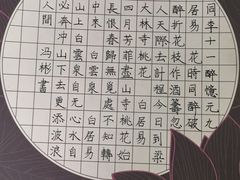 同李十一醉憶元九
居易 花時同醉破
醉折花枝作酒籌忽
人天際去計程今日到梁
大林寺桃花 白居易
四月芳菲盡山寺桃花始
長恨春歸無覓處不知轉
中來 白雲泉 白居易
山上白雲泉雲自無心水自
必奔沖山下去更添波浪
人間 馮彬書